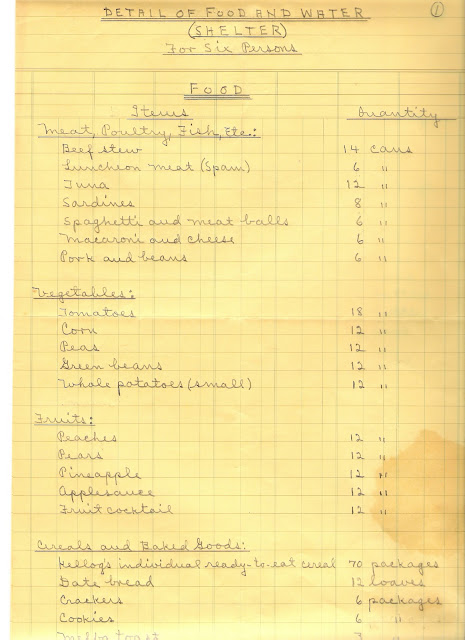 DETAIL OF FOOD AND WATER
(SHELTER)
For Six Persons
1
FOOD
Items Quantity
Meat, Poultry, Fish, Etc.:
Beef stew 14 cans
Luncheon meat (Spam) 6 "
Tuna 12 "
Sardines 8 "
Spaghetti and meat balls 6 "
Macaroni and cheese 6 "
Pork and beans 6 "
Vegetables:
Tomatoes 18 "
Corn 12 "
Peas 12 "
Green beans 12 "
Whole potatoes (small) 12 "
Fruits:
Peaches 12 "
Pears 12 "
Pineapple 12 "
Applesauce 12 "
Fruit cocktail 12 "
Cereals and Baked Goods:
Kellog's individual ready-to-eat cereal 70 packages
Date bread 12 loaves
Crackers 6 packages
Cookies 6 "
Melba toast 3